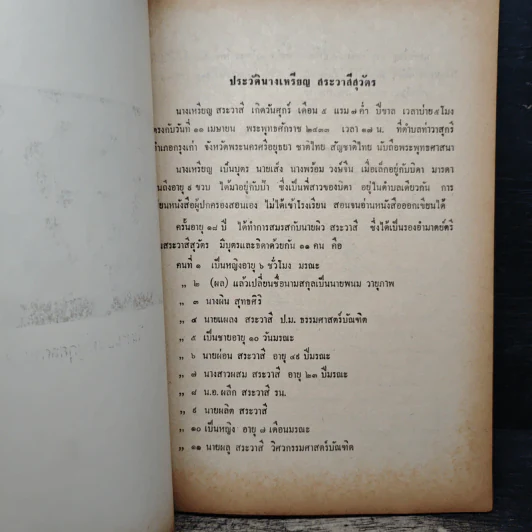 ประวัตินางเหรียญ สระวาสีสุวัตร
นางเหรียญ สระวาสี เกิดวันศุกร์ เดือน ๕ แรม ๗ ค่ำ ปีขาล เวลาบ่าย ๕ โมง
ตรงกับวันที่ ๑๐ เมษายน พระพุทธศักราช ๒๔๓๓ เวลา ๑๗ น. ที่ตำบลท่าวาสุกรี
อำเภอกรุงเก่า จังหวัดพระนครศรีอยุธยา ชาติไทย สัญชาติไทย นับถือพระพุทธศาสนา
นางเหรียญ เป็นบุตร นายเส็ง นางพร้อม วงษ์จีน เมื่อเล็กอยู่กับบิดา มารดา
จนถึงอายุ ๘ ขวบ ได้มาอยู่กับป้า ซึ่งเป็นพี่สาวของบิดา อยู่ในตำบลเดียวกัน การ
เรียนหนังสือผู้ปกครองสอนเอง ไม่ได้เข้าโรงเรียน สอนจนอ่านหนังสือออกเขียนได้
ครั้นอายุ ๑๘ ปี ได้ทำการสมรสกับนายผิว สระวาสี ซึ่งได้เป็นรองอำมาตย์ตรี
สระวาสีสุวัตร มีบุตรและธิดาด้วยกัน ๑๑ คน คือ
คนที่ ๑ เป็นหญิงอายุ ๖ ชั่วโมง มรณะ
„ ๒ (ผล) แล้วเปลี่ยนชื่อนามสกุลเป็นนายพนม วายุภาพ
„ ๓ นางผิน สุทธศิริ
„ ๔ นายแผลง สระวาสี ป.ม. ธรรมศาสตร์บัณฑิต
„ ๕ เป็นชายอายุ ๑๐ วันมรณะ
„ ๖ นายผ่อน สระวาสี อายุ ๔๙ ปีมรณะ
„ ๗ นางสาวผสม สระวาสี อายุ ๒๓ ปีมรณะ
„ ๘ น.อ.ผลึก สระวาสี รน.
„ ๙ นายผลิต สระวาสี
„ ๑๐ เป็นหญิง อายุ ๗ เดือนมรณะ
„ ๑๑ นายผลู สระวาสี วิศวกรรมศาสตร์บัณฑิต